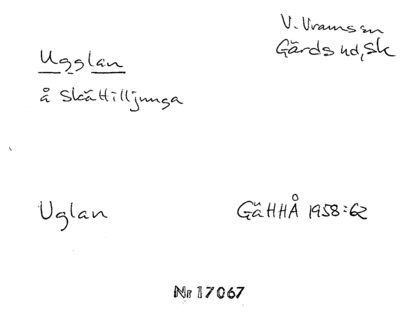 V. Vramssn
Gärds hd, Sk
Ugglan
å Skättilljunga
Uglan
GäHHÅ 1958:62
Nr 17067